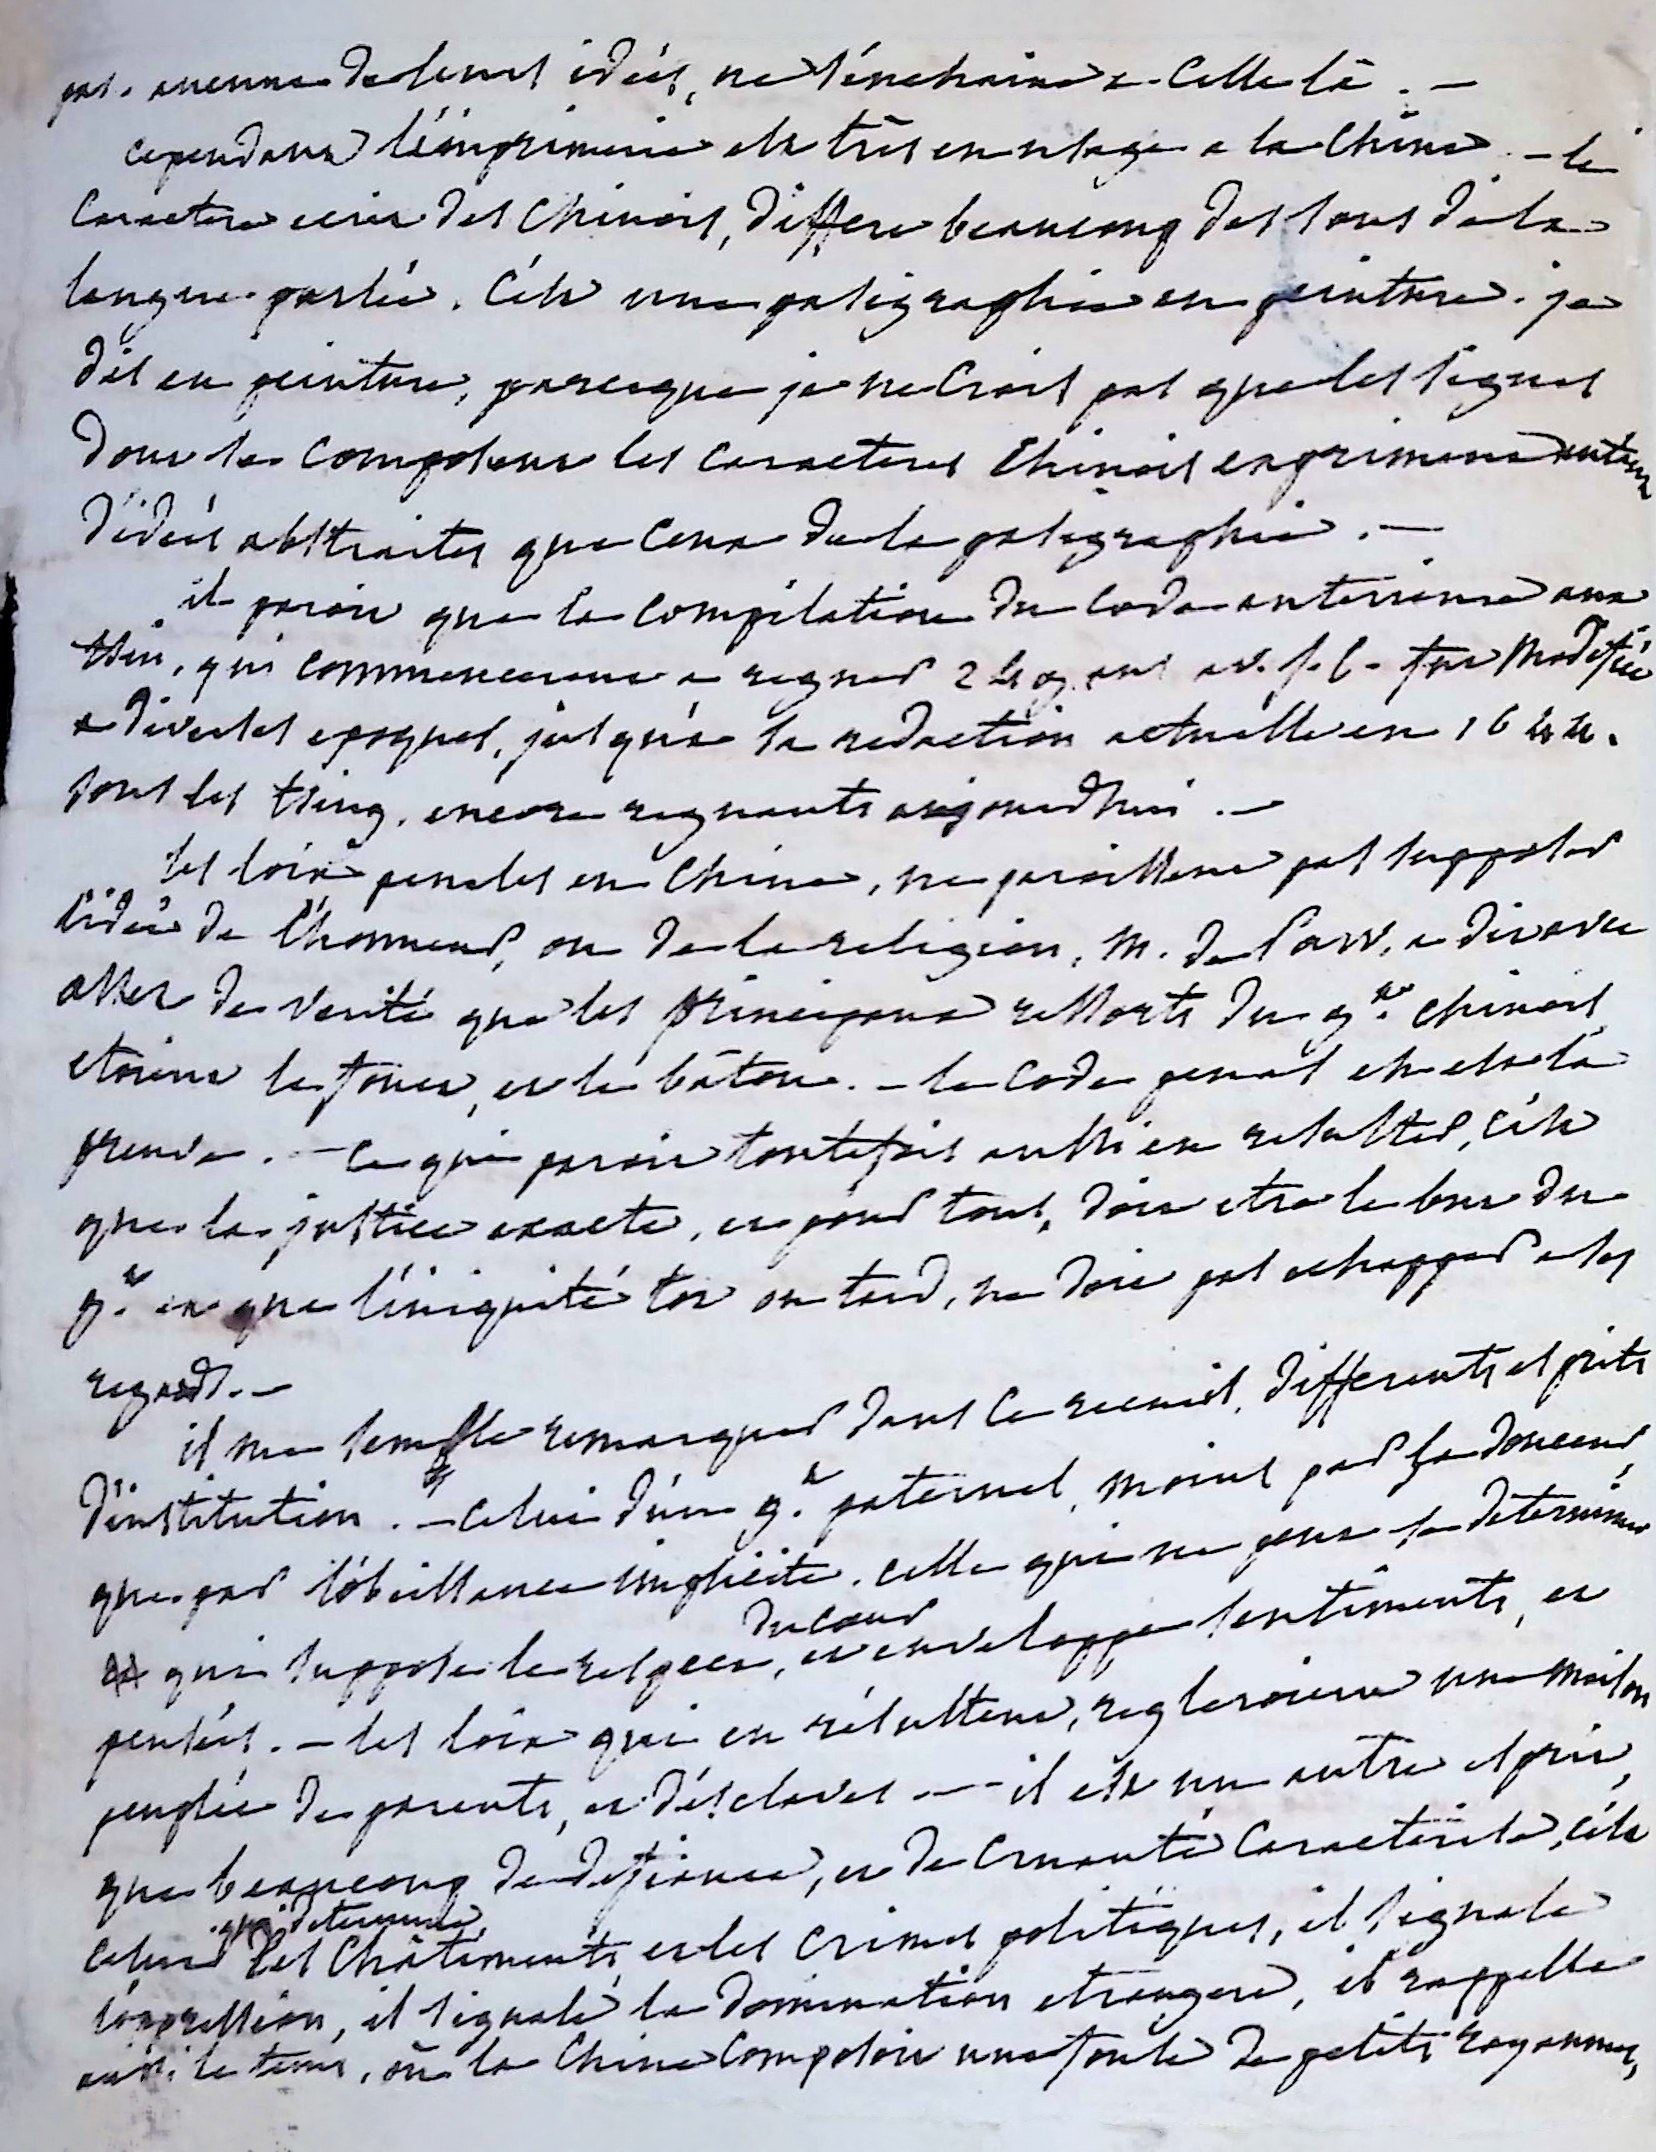 pas. aucune de leurs idées, ne s'enchaine a celle la. —
cependant l'imprimerie est très en usage a la Chine. — le
Caractere ecrit des Chinois, differe beaucoup des sons de la
langue parlée. C'est une pasigraphie en peinture. je
dis en peinture, parceque je ne crois pas que les signes
dont se composent les caracteres Chinois expriment autant
d'idées abstraites que ceux de la pasigraphie. —
il paroit que la compilation du Code anterieure aux
tsin, qui commencerent a regner 249 ans av. J. C. fut modifiée
a diverses epoques, jusqu'a sa redaction actuelle en 1644.
sous les tsing, encore regnants aujourdhui. —
les loix penales en Chine, ne paroissent pas supposer
l'idée de l'honneur, ou de la religion, M. de Paw, a dit avec
assez de verité que les principaux ressorts du g.nt chinois
etoient le fouet, et le bâton. — le code penal en est la
preuve. — ce qui paroit toutefois aussi en resulter, c'est
que la justice exacte, et pour tous, doit etre le but du
g.t et que l'iniquité tot ou tard, ne doit pas echapper a ses
regards. —
il me semble remarquer dans ce recueil, differents esprits
d'institution. — celui d'un g.t paternel, moins par sa douceur,
que par l'obeissance implicite, celle qui ne peut se determiner
qui suppose le respect, du cœur et enveloppe sentiments, et
pensées. — les loix qui en résultent, regleroient une maison
peuplée de parents, et d'esclaves. — il est un autre esprit,
que beaucoup de defiance, et de cruauté caracterise, c'est
celui qui determine les Châtiments, et les crimes politiques, il signale
l'oppression, il signale la domination etrangere, il rappelle
aussi le tems, où la Chine composoit une foule de petits royaumes,